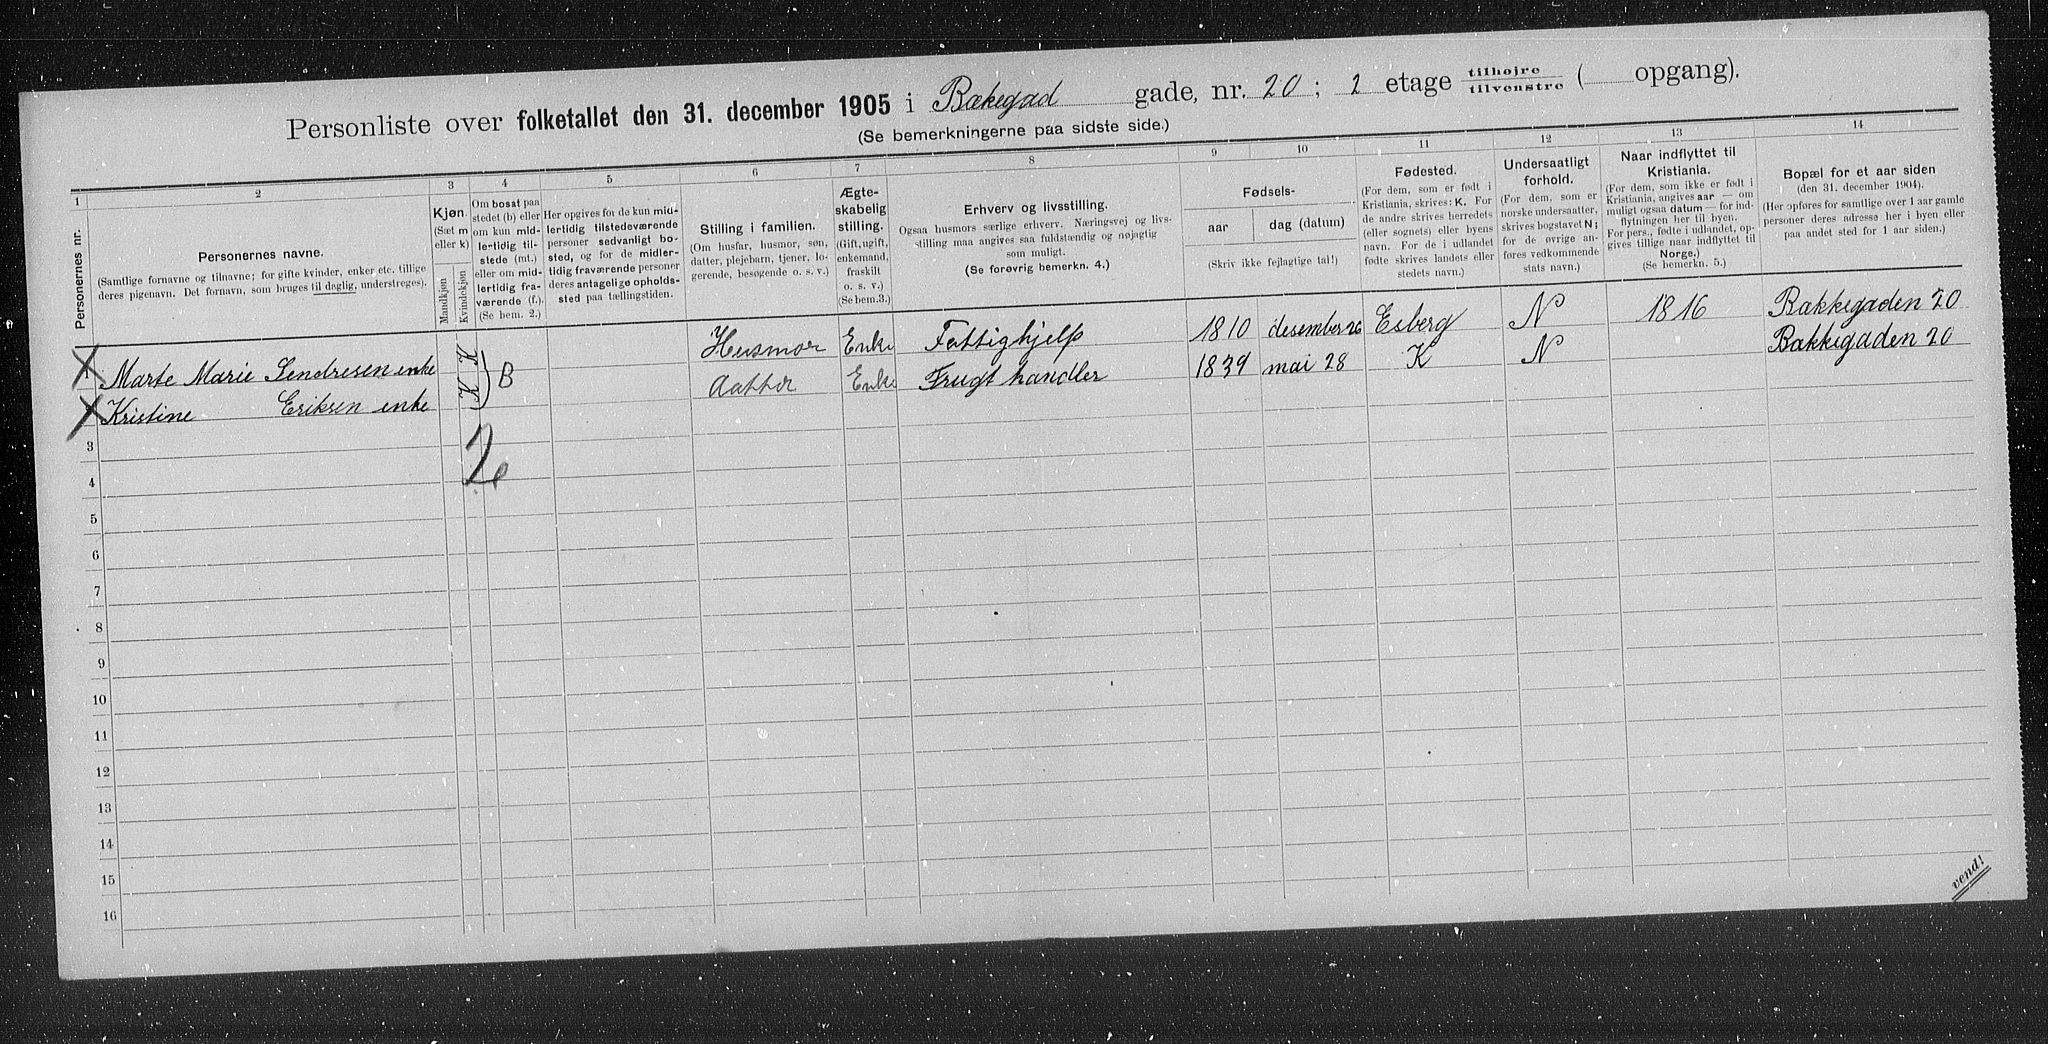 Personliste over folketallet den 31. december 1905 i Bakkegad gade, nr. 20; 2 etage tilhøjre tilvenstre ( opgang).
(Se bemerkningerne paa sidste side.)
1 2 3 4 5 6 7 8 9 10 11 12 13 14
Personernes nr.
Personernes navne.
(Samtlige fornavne og tilnavne; for gifte kvinder, enker etc. tillige
deres pigenavn. Det fornavn, som bruges til daglig, understreges).
Kjøn.
(Sæt m
eller k)
Mandkjøn
Kvindekjøn
Om bosat paa
stedet (b) eller
om kun mid-
lertidig til-
stede (mt.)
eller om mid-
lertidig fra-
værende (f.).
(Se bem. 2.)
Her opgives for de kun mid-
lertidig tilstedeværende
personer sedvanligt bo-
sted, og for de midler-
tidig fraværende personer
deres antagelige opholds-
sted paa tællingstiden.
Stilling i familien.
(Om husfar, husmor, søn,
datter, plejebarn, tjener, lo-
gerende, besøgende o. s. v.)
Ægte-
skabelig
stilling.
(Gift, ugift,
enkemand,
fraskilt
o. s. v.)
(Se bem.3.)
Erhverv og livsstilling.
Ogsaa husmors særlige erhverv. Næringsvej og livs-
stilling maa angives saa fuldstændig og nøjagtig
som muligt.
(Se forøvrig bemerkn. 4.)
Fødsels-
aar dag (datum)
(Skriv ikke fejlagtige tal!)
Fødested.
(For dem, som er født i
Kristiania, skrives: K. For
de andre skrives herredets
(eller sognets) eller byens
navn. For de i udlandet
fødte skrives landets eller
stedets navn.)
Undersaatligt
forhold.
(For dem, som er
norske undersaatter,
skrives bogstavet N;
for de øvrige an-
føres vedkommende
stats navn.)
Naar indflyttet til
Kristiania.
(For dem, som ikke er født i
Kristiania, angives aar — om
muligt ogsaa datum — for ind-
flytningen her til byen.
For pers., fødte i udlandet, op-
gives tillige naar indflyttet til
Norge.)
(Se bemerkn. 5.)
Bopæl for et aar siden
(den 31. december 1904).
(Her opføres for samtlige over 1 aar gamle
personer deres adresse her i byen eller
paa andet sted for 1 aar siden.)
1 Marte Marie Sendresen enke K B Husmor Enke Fattighjelp 1810 desember 26 Esberg N 1816 Bakkegaden 20
Kristine Eriksen enke K Datter Enke Frugt handler 1839 mai 28 K N Bakkegaden 20
2
3
4
5
6
7
8
9
10
11
12
13
14
15
16
vend!